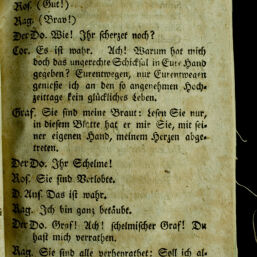 Ros. (Gut!)
Rag. (Brav!)
Der Do. Wie! Ihr scherzet noch?
Cor. Es ist wahr. Ach! Warum hat mich
doch das ungerechte Schicksal in Eure Hand
gegeben? Eurentwegen, nur Eurentwegen
genieße ich an den so angenehmen Hoch-
zeittage kein glückliches Leben.
Graf. Sie sind meine Braut: Lesen Sie nur,
in diesem Blatte hat er mir Sie, mit sei-
ner eigenen Hand, meinem Herzen abge-
treten.
Der Do. Ihr Schelme!
Ros. Sie sind Verlobte.
D. Anf. Das ist wahr.
Rag. Ich bin ganz betäubt.
Der Do. Graf! Ach! schelmischer Graf! Du
hast mich verrathen.
Rag. Sie sind alle verheyrathet: Soll ich al-